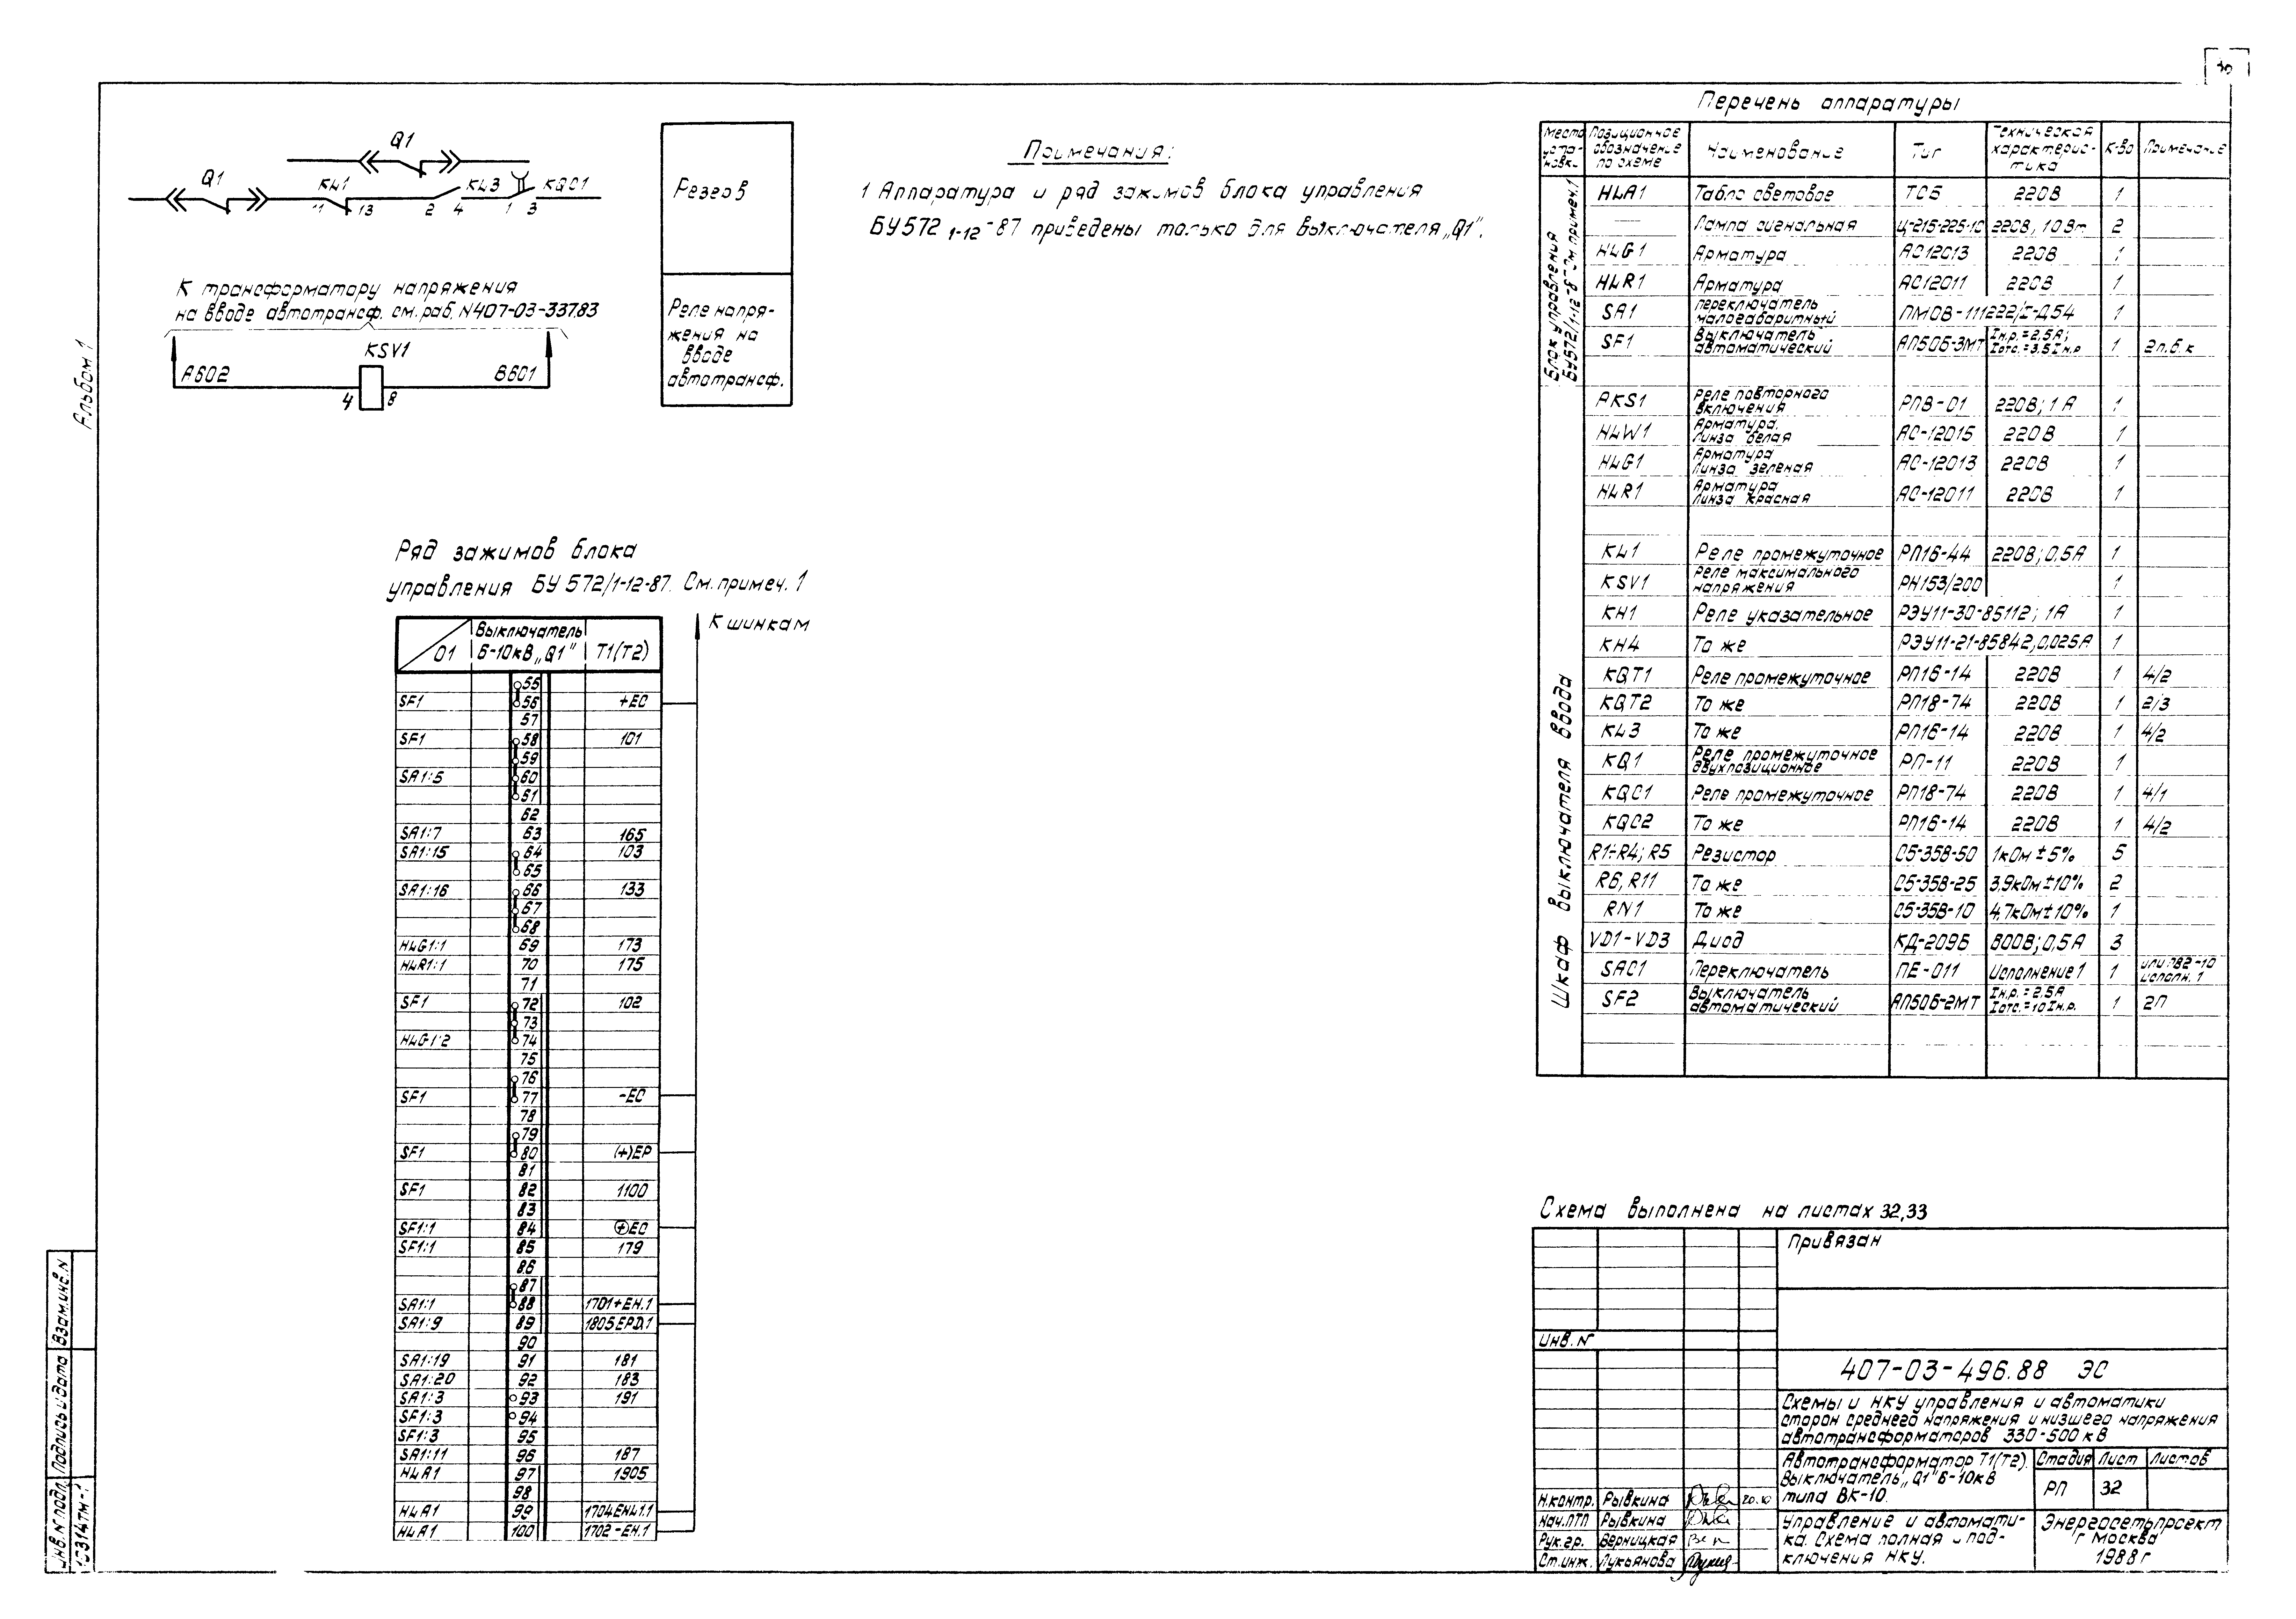 Альбом 1
Q1
Q1 KL1 KL3 KQC1
11 13 2 4 1 3
Резерв
К трансформатору напряжения
на вводе автотрансф. см. раб. N407-03-337.83
KSV1
A602 B601
4 8
Реле напря-
жения на
вводе
автотрансф.
Примечания:
1 Аппаратура и ряд зажимов блока управления
БУ572 1-12-87 приведены только для выключателя „Q1".
Ряд зажимов блока
управления БУ 572/1-12-87. См. примеч. 1
К шинкам
01 Выключатель 6-10кВ „Q1" Т1(Т2)
55
SF1 56 +EC
57
SF1 58 101
59
SA1:5 60
61
62
SA1:7 63 165
SA1:15 64 103
65
SA1:16 66 133
67
68
HLG1:1 69 173
HLR1:1 70 175
71
SF1 72 102
73
HLG1:2 74
75
76
SF1 77 -EC
78
79
SF1 80 (+)EP
81
SF1 82 1100
83
SF1:1 84 (+)EC
SF1:1 85 179
86
87
SA1:1 88 1701+EH.1
SA1:9 89 1805EPD.1
90
SA1:19 91 181
SA1:20 92 183
SA1:3 93 191
SF1:3 94
SF1:3 95
SA1:11 96 187
HLA1 97 1905
98
HLA1 99 1704EHL1.1
HLA1 100 1702-EH.1
Перечень аппаратуры
Место уста-новки Позиционное обозначение по схеме Наименование Тип Техническая характерис-тика К-во Примечание
Блок управления
БУ572/1-12-8 См. примеч. 1
HLA1 Табло световое ТСБ 220В 1
Лампа сигнальная Ц-215-225-10 220В, 10Вт 2
HLG1 Арматура АС12013 220В 1
HLR1 Арматура АС12011 220В 1
SA1 Переключатель малогабаритный ПМОВ-111222/I-Д54 1
SF1 Выключатель автоматический АП50Б-3МТ Iн.р.=2,5А; Iотс.=3,5Iн.р 1 2п.б.к
Шкаф выключателя ввода
AKS1 Реле повторного включения РПВ-01 220В; 1А 1
HLW1 Арматура. Линза белая АС-12015 220В 1
HLG1 Арматура Линза зеленая АС-12013 220В 1
HLR1 Арматура Линза красная АС-12011 220В 1
KL1 Реле промежуточное РП16-44 220В; 0,5А 1
KSV1 Реле максимального напряжения РН153/200 1
KH1 Реле указательное РЭУ11-30-85112; 1А 1
KH4 То же РЭУ11-21-85842, 0,025А 1
KQT1 Реле промежуточное РП16-14 220В 1 4/2
KQT2 То же РП18-74 220В 1 2/3
KL3 То же РП16-14 220В 1 4/2
KQ1 Реле промежуточное двухпозиционное РП-11 220В 1
KQC1 Реле промежуточное РП18-74 220В 1 4/1
KQC2 То же РП16-14 220В 1 4/2
R1÷R4; R5 Резистор С5-35В-50 1кОм ±5% 5
R6, R11 То же С5-35В-25 3,9кОм±10% 2
RN1 То же С5-35В-10 4,7кОм±10% 1
VD1-VD3 Диод КД-209Б 800В; 0,5А 3
SAC1 Переключатель ПЕ-011 Исполнение 1 1 исполн. 1
SF2 Выключатель автоматический АП50Б-2МТ Iн.р.=2,5А Iотс.=10Iн.р. 1 2П
Схема выполнена на листах 32,33
Привязан
Инв. N
407-03-496.88 ЭС
Схемы и НКУ управления и автоматики
сторон среднего напряжения и низшего напряжения
автотрансформаторов 330-500 кВ
Автотрансформатор Т1(Т2).
Выключатель „Q1" 6-10кВ
типа ВК-10.
Стадия Лист Листов
РП 32
Управление и автомати-
ка. Схема полная и под-
ключения НКУ.
Энергосетьпроект
г Москва
1988г
Н.контр. Рывкина 20.10
Нач.ПТП Рывкина
Рук.гр. Верницкая
Ст.инж. Лукьянова
Инв. N подл. Подпись и дата Взам.инв.N
10314тм-1